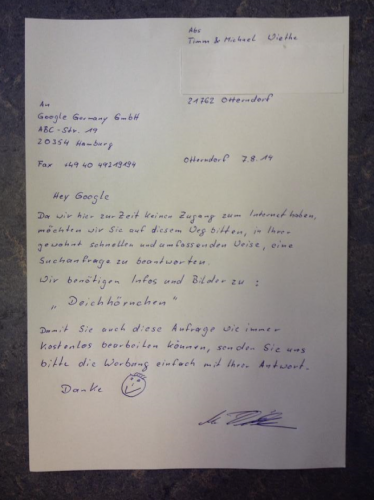 Abs
Timm & Michael Wiethe
21762 Otterndorf
An
Google Germany GmbH
ABC-Str. 19
20354 Hamburg
Fax +49 40 49219194
Otterndorf 7.8.14
Hey Google
Da wir hier zur Zeit keinen Zugang zum Internet haben,
möchten wir Sie auf diesem Weg bitten, in Ihrer
gewohnt schnellen und umfassenden Weise, eine
Suchanfrage zu beantworten.
Wir benötigen Infos und Bilder zu:
„Deichhörnchen"
Damit Sie auch diese Anfrage wie immer
kostenlos bearbeiten können, senden Sie uns
bitte die Werbung einfach mit Ihrer Antwort.
Danke